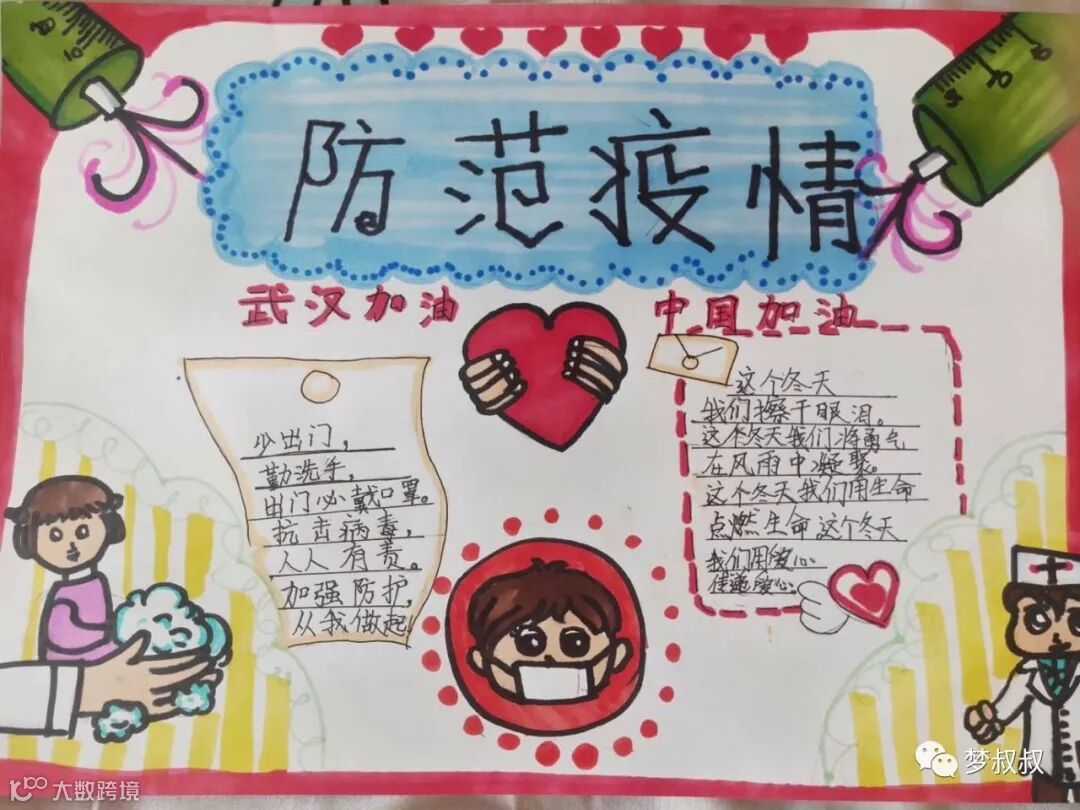 防范疫情
武汉加油
中国加油
少出门，
勤洗手，
出门必戴口罩。
抗击病毒，
人人有责。
加强防护，
从我做起！
这个冬天
我们擦干眼泪。
这个冬天我们将勇气
在风雨中凝聚。
这个冬天我们用生命
点燃生命这个冬天
我们用爱心
传递爱心。
大数跨境
梦叔叔